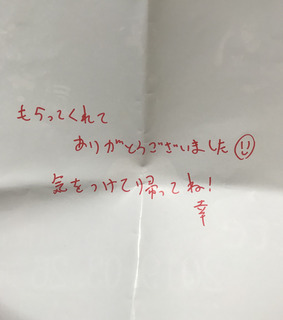 もらってくれて
ありがとうございました
気をつけて帰ってね!
幸